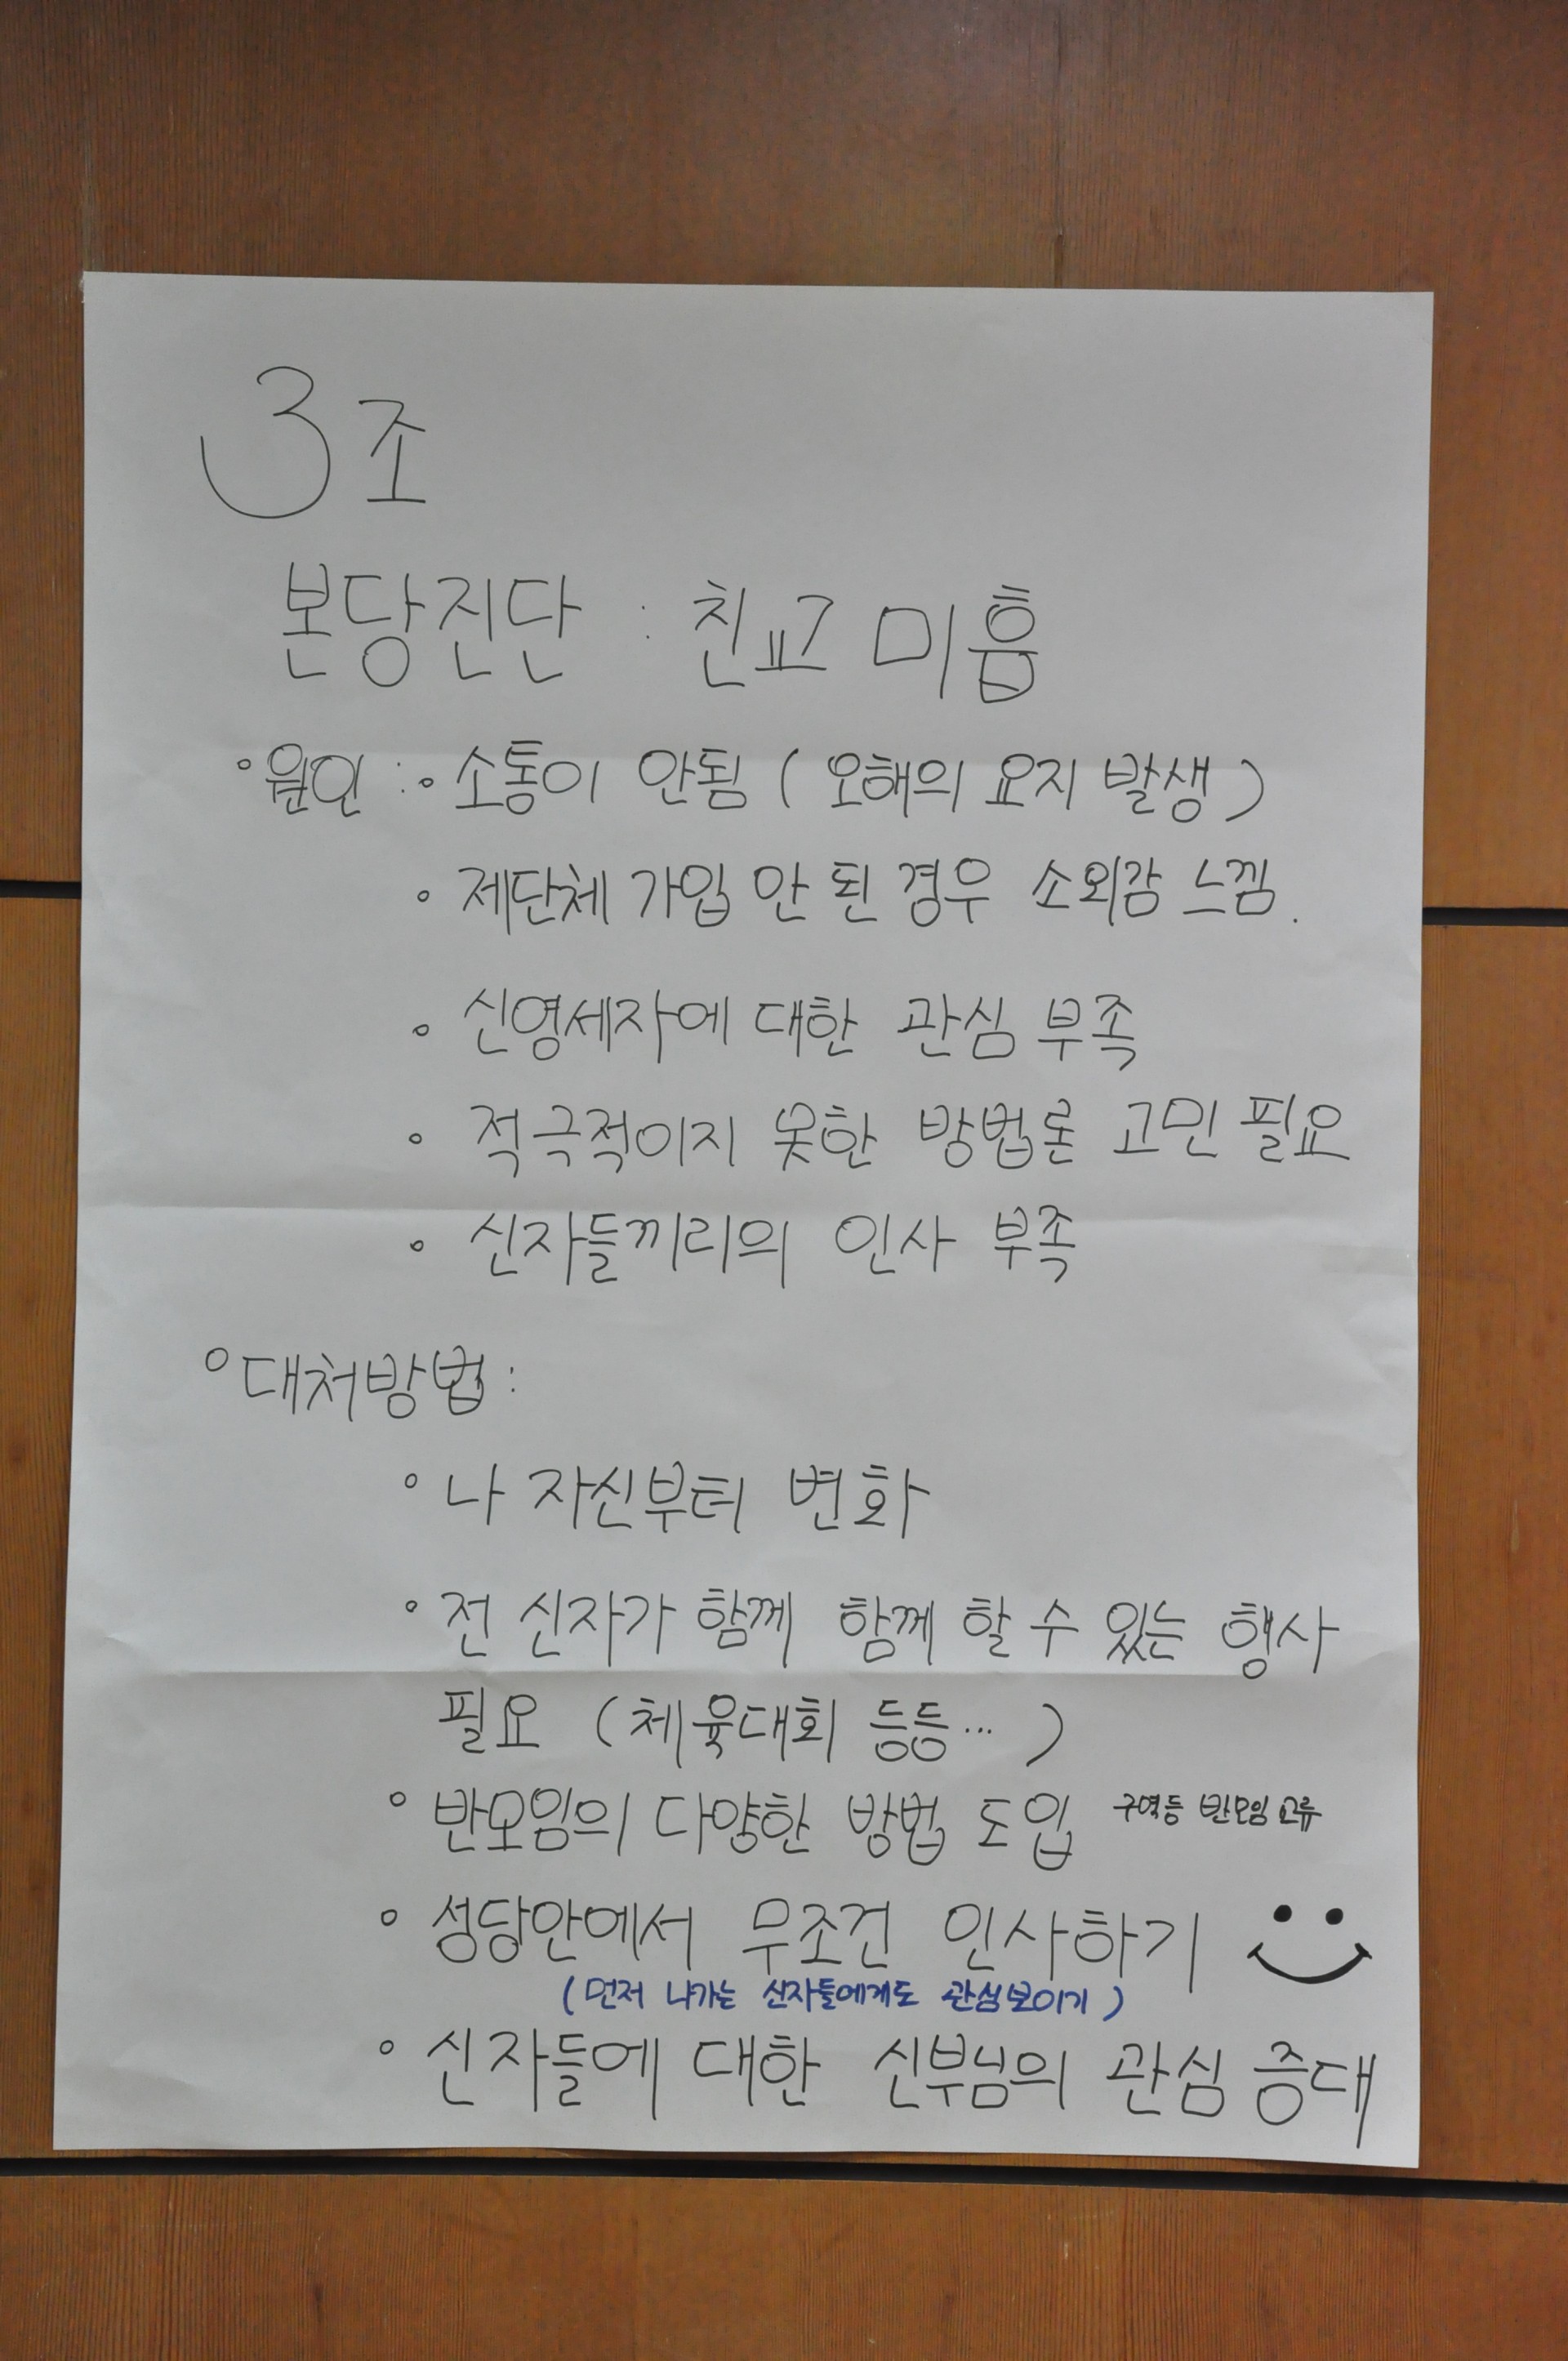 3조
본당진단 : 친교 미흡
◦원인 : ◦ 소통이 안됨 ( 오해의 요지 발생 )
◦ 제단체 가입 안 된 경우 소외감 느낌.
◦ 신영세자에 대한 관심 부족
◦ 적극적이지 못한 방법론 고민 필요
◦ 신자들끼리의 인사 부족
◦대처방법 :
◦ 나 자신부터 변화
◦ 전 신자가 함께 함께 할 수 있는 행사
필요 ( 체육대회 등등… )
◦ 반모임의 다양한 방법 도입 구역등 반모임 교류
◦ 성당안에서 무조건 인사하기
( 먼저 나가는 신자들에게도 관심보이기 )
◦ 신자들에 대한 신부님의 관심 증대